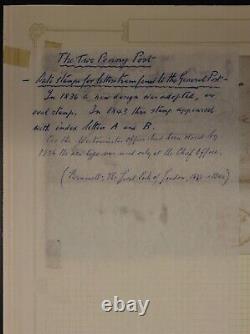 The Two Penny Post
- Date stamps for letters transferred to the General Post -
In 1836 a new design was adopted, an
oval stamp. In 1843 this stamp appeared
with index letter A and B.
As the Westminster Office had been closed by
1834 the new type was used only at the Chief Office.
The Local Post of London,